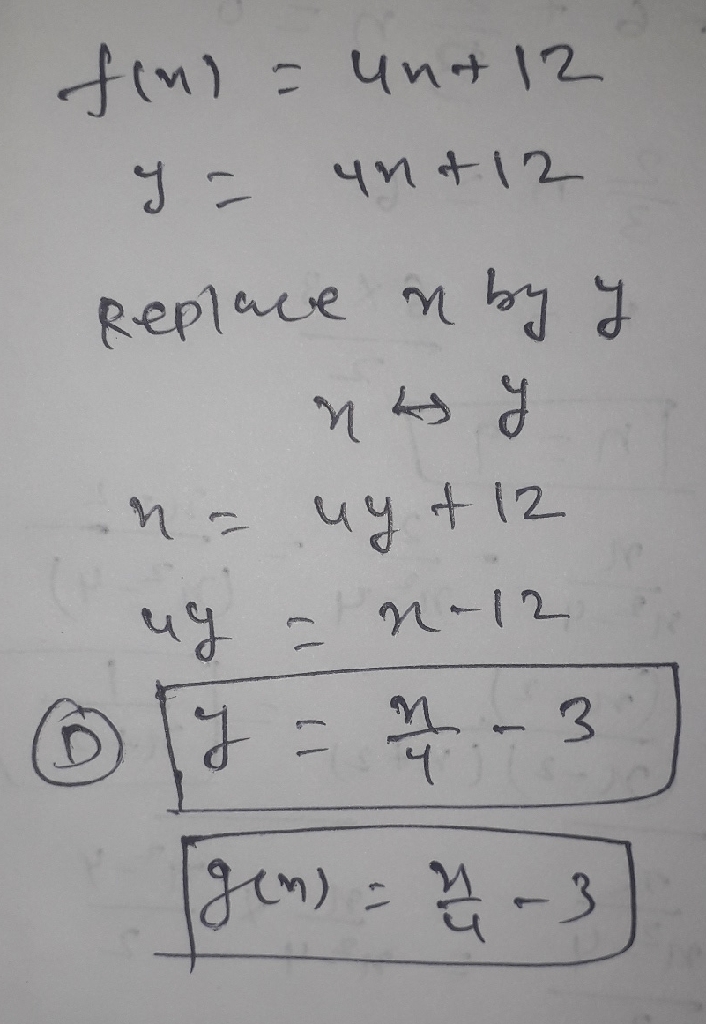 f(x) = 4x+12
y = 4x+12
Replace x by y
x ↔ y
x = 4y + 12
4y = x-12
(D) y = x/4 - 3
g(x) = x/4 - 3